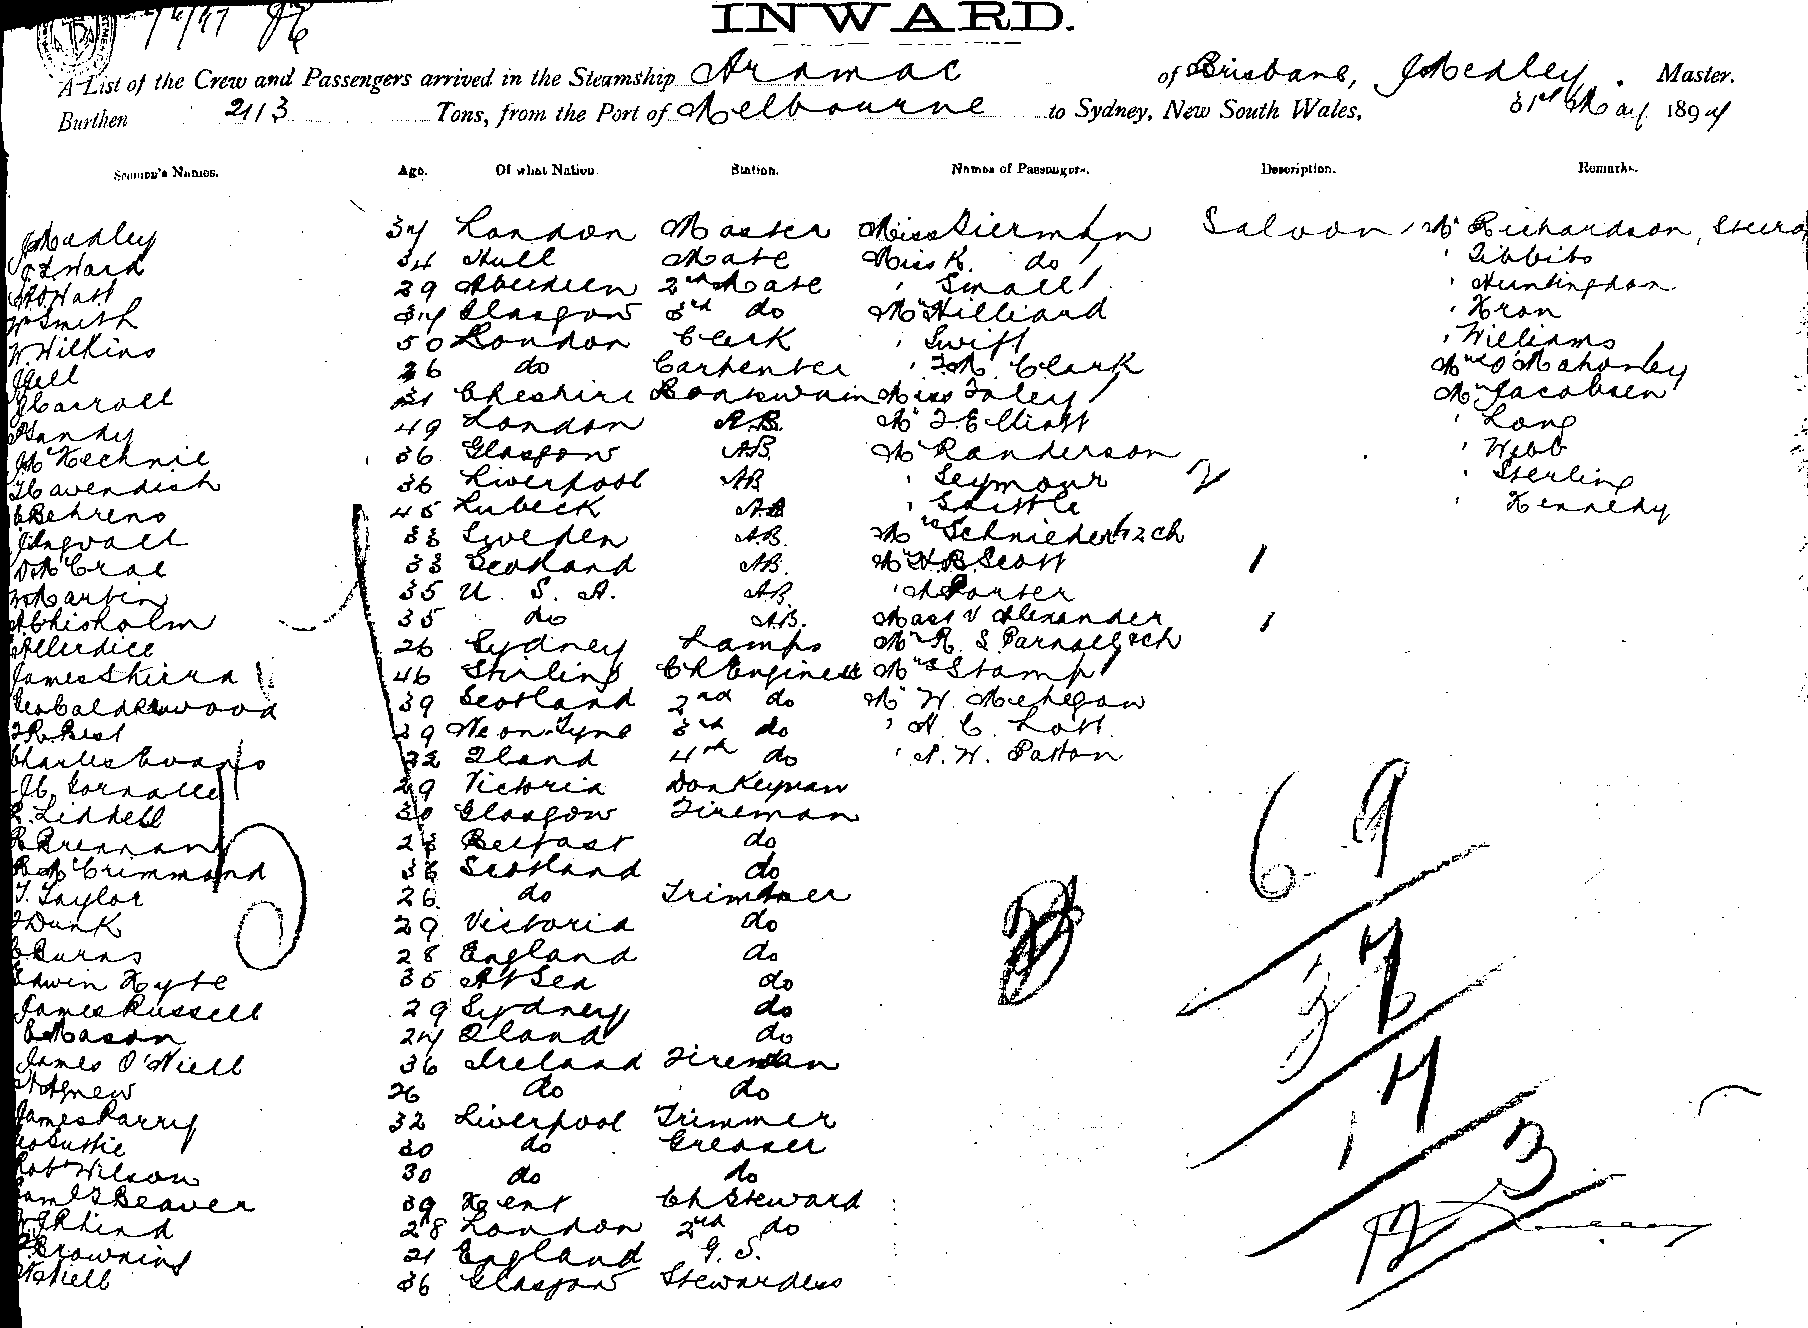 INWARD.
A List of the Crew and Passengers arrived in the Steamship Aramac of Brisbane, J Medley. Master.
Burthen 2113 Tons, from the Port of Melbourne to Sydney, New South Wales, 31st May 1897
Seamen's Names. Age. Of what Nation. Station. Names of Passengers. Description. Remarks.
J Medley 37 London Master Miss Bierman Saloon Mr Richardson,
Ward 34 Hull Mate Miss K. do Tibbits
Watt 29 Aberdeen 2nd Mate " Small Huntingdon
Wm Smith 37 Glasgow 3rd do Mr Hilliard Kron
W Wilkins 50 London Clerk " Swift Williams
J Hill 26 do Carpenter " F.M. Clark Mrs O'Mahonley
J Carroll 31 Cheshire Boatswain Miss Foley Mr Jacobsen
Handy 49 London A.B. Mr F. Elliott Long
J McKechnie 36 Glasgow AB. Mr Randerson Webb
Cavendish 36 Liverpool AB " Seymour Sterling
C Behrens 45 Lubeck AB Kennedy
33 Sweden A.B. Mrs
D McCrae 33 Scotland AB. Mr H.B. Scott
W Martin 35 U. S. A. AB. Porter
A Chisholm 35 do AB. Mast V Alexander
Allerdice 26 Sydney Lamps Mr R. S. Parnall
James Shirra 46 Stirling Ch Engineer Mrs Stamp
Geo Calderwood 39 Scotland 2nd do Mr W. Mehegan
Best 29 N on Tyne 3rd do " H. C. Lott
Charles Evans 32 Qland 4th do " N. W. Patton
J.C. Gornall 29 Victoria Donkeyman
R. Liddell 30 Glasgow Fireman
R Brennan 28 Belfast do
R McCrimmond 36 Scotland do
T. Taylor 26 do Trimmer
J Dunk 29 Victoria do
C Burns 28 England do
Edwin Kyte 35 At Sea do
James Russell 29 Sydney do
C Mason 27 Qland do
James O'Niell 36 Ireland Fireman
Agnew 26 do do
James Parry 32 Liverpool Trimmer
30 do Greaser
Robt Wilson 30 do do
James Beaver 39 Kent Ch Steward
Rhind 28 London 2nd do
Browning 21 England G. S.
Niell 36 Glasgow Stewardess
69